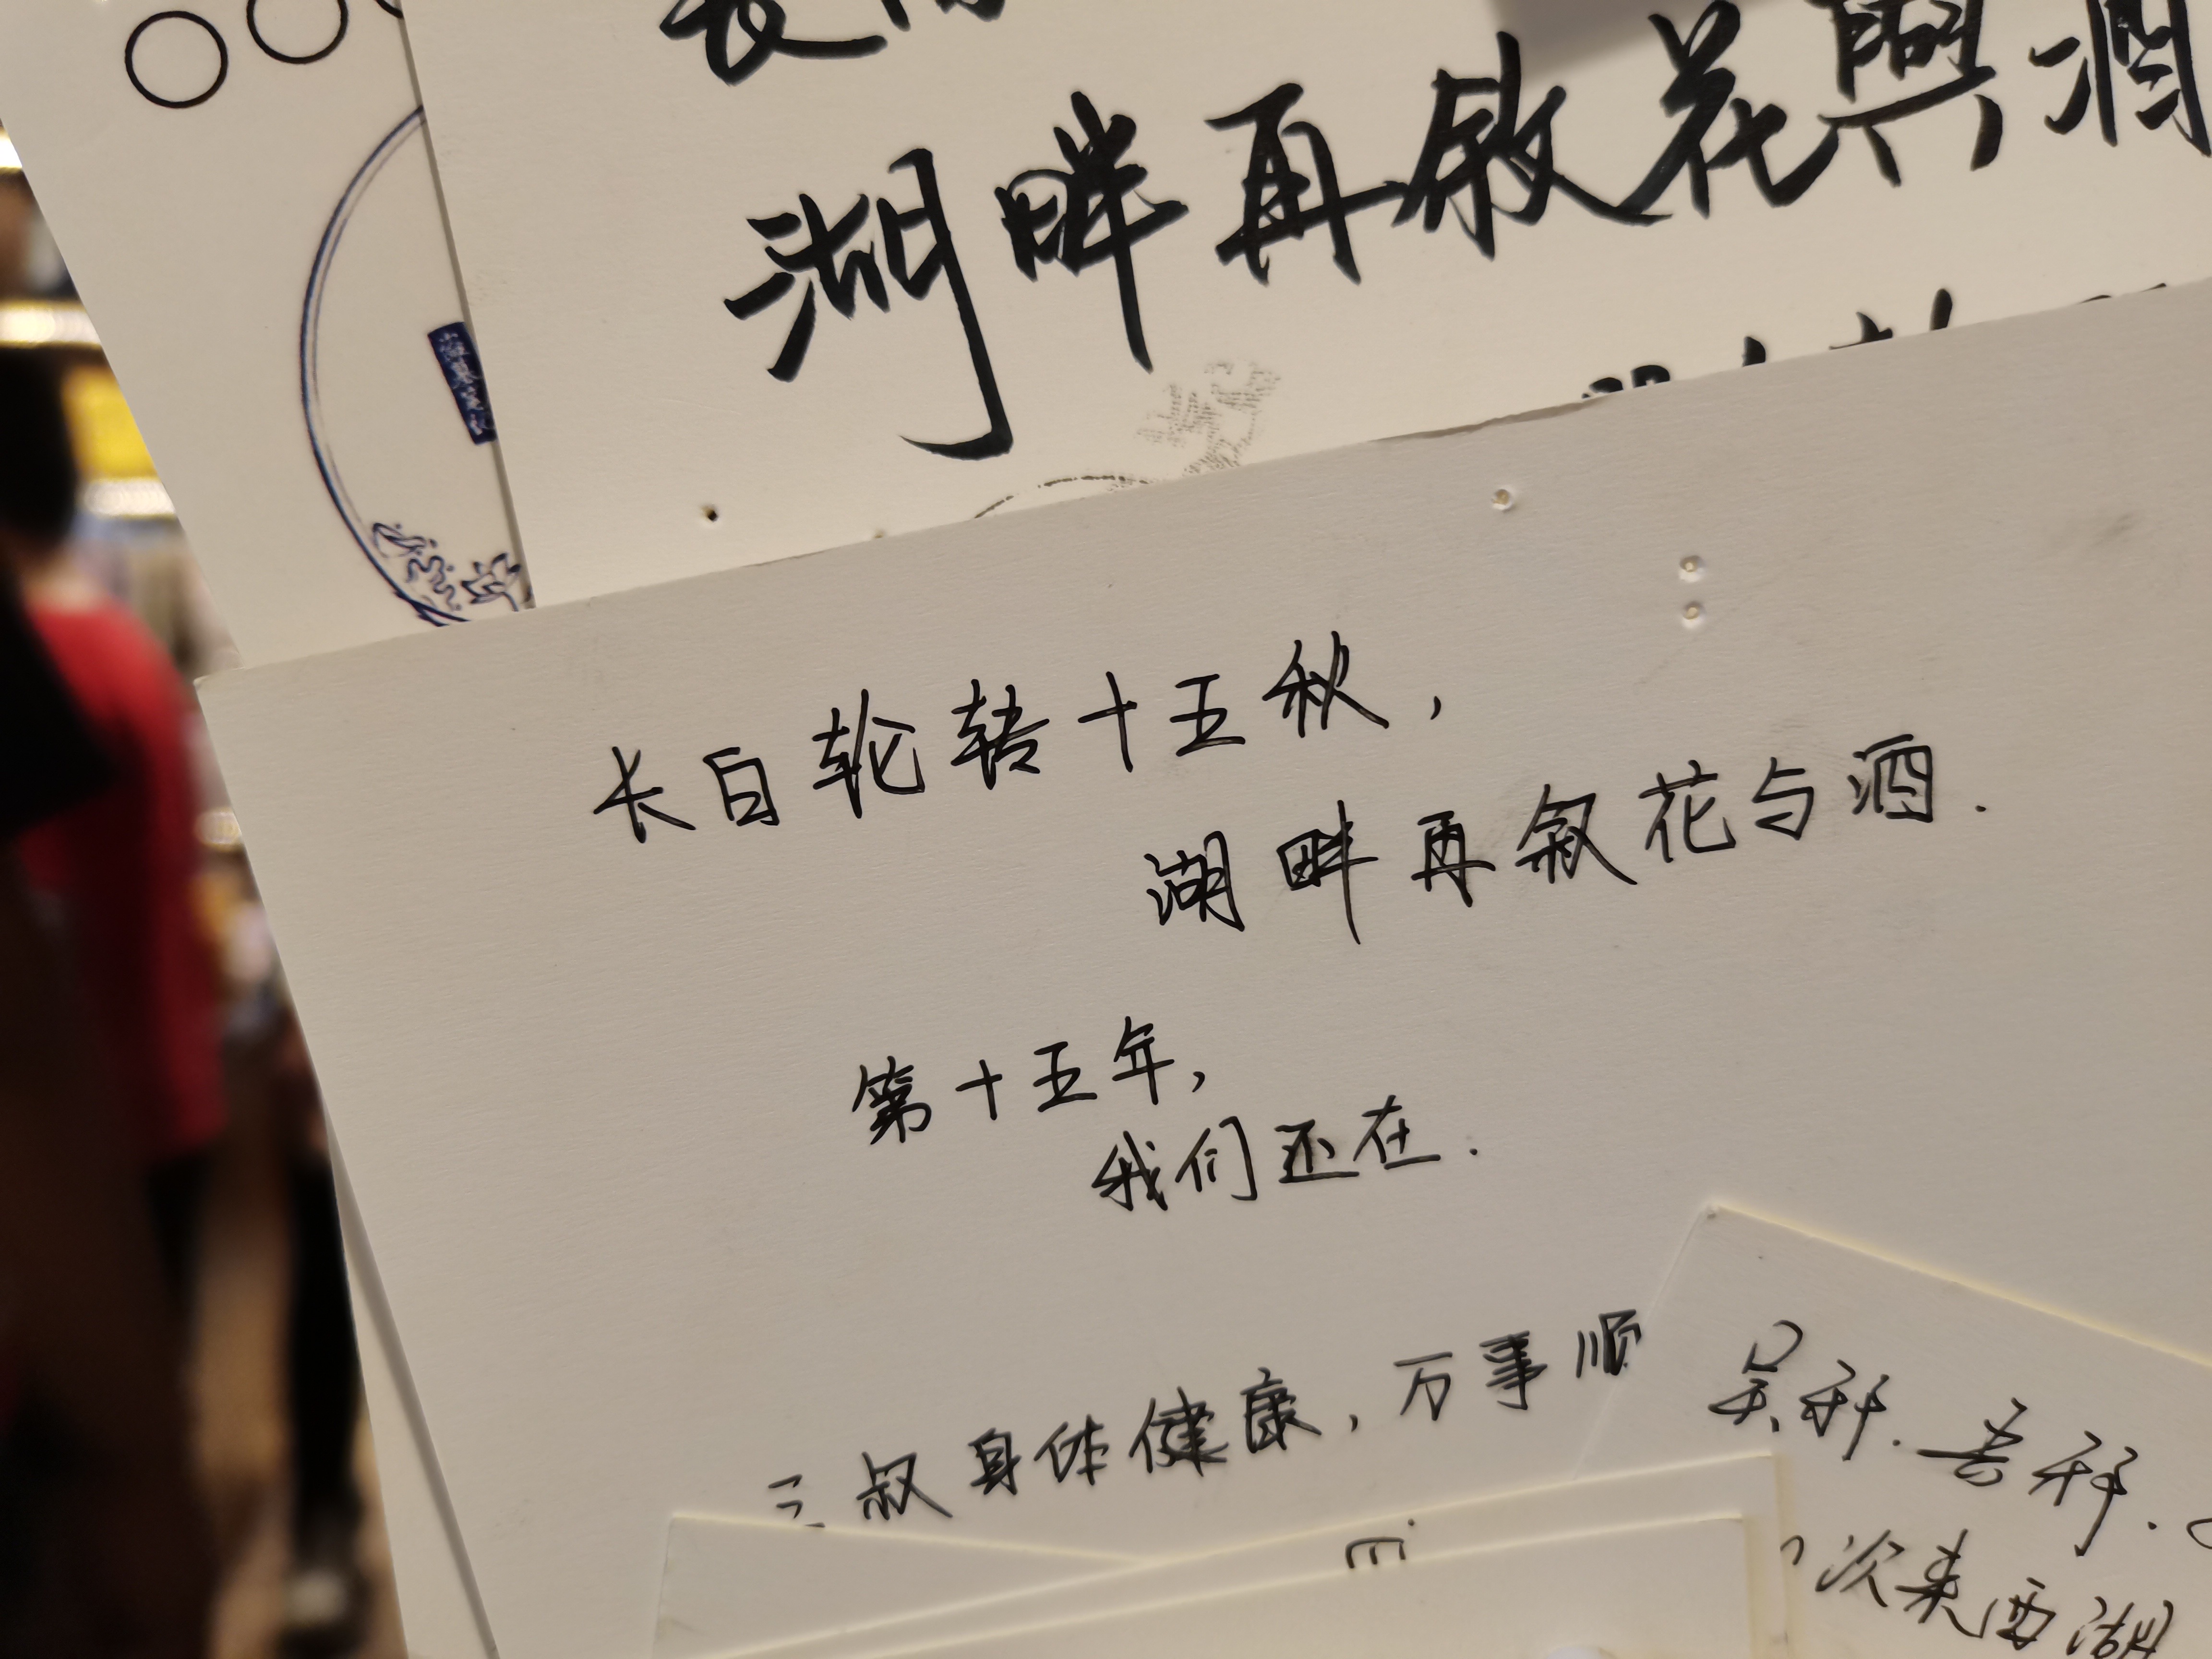 湖畔再敘花與酒
长白轮转十五秋，
湖畔再叙花与酒.
第十五年，
我们还在.
三叔身体健康，万事顺
吴邪.吉祥.
次来西湖